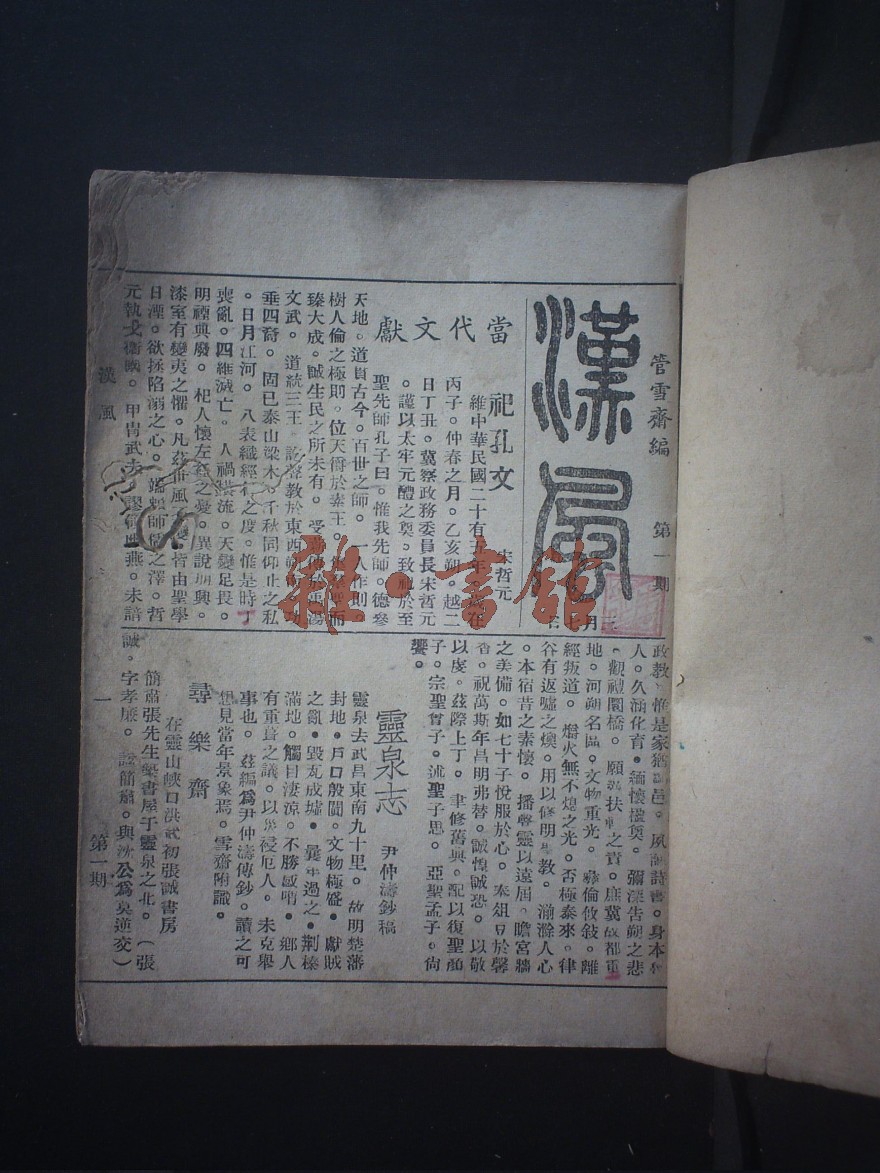 管雪齋編　第一期
漢風
三月十
當代文獻
祀孔文　宋哲元
維中華民國二十有五年
丙子。仲春之月。乙亥朔。越二
日丁丑。冀察政務委員長宋哲元
。謹以太牢元醴之奠。致於至
聖先師孔子曰。惟我先師。德參
天地。道貫古今。百世之師。一人作則。
樹人倫之極則。位天爵於素王。
臻大成。誠生民之所未有。受
文武。道統三王。聲教於東西
垂四裔。固已泰山梁木。千秋同仰止之私
。日月江河。八表織經行之度。惟是時丁
喪亂。四維滅亡。人禍洪流。天變足畏。
明禋典廢。杞人懷左衽之憂。異說朋興。
漆室有變夷之懼。凡茲世風。皆由聖學
日湮。欲拯陷溺之心。師儒之澤。哲
元執戈衛國。甲冑武夫。燕。未諳
政教。惟是家鄉邑。夙誦詩書。身本
人。久涵化育。緬懷。彌深告朔之悲
。觀禮闤橋。願扶之責。庶冀故都重
地。河朔名區。文物重光。彝倫攸敍。離
經叛道。爝火無不熄之光。否極泰來。律
谷有返噓之燠。用以修明教。湔滌人心
。本宿昔之素懷。播聲靈以遠屆。瞻宮牆
之美備。如七十子悅服於心。奉俎豆於馨
香。祝萬斯年昌明弗替。誠惶誠恐。以敬
以虔。茲際上丁。聿修舊典。配以復聖顏
子。宗聖曾子。述聖子思。亞聖孟子。尙
饗。
靈泉志　尹仲濤鈔稿
靈泉去武昌東南九十里。故明楚藩
封地。戶口殷闐。文物極盛。獻賊
之亂。毀瓦成墟。曩年過之。荆榛
滿地。觸目淒涼。不勝感喟。鄉人
有重葺之議。以侵厄人。未克舉
事也。茲編爲尹仲濤傳鈔。讀之可
想見當年景象焉。雪齋附識。
尋樂齋
在靈山峽口洪武初張誠書房
簡肅張先生築書屋于靈泉之北。（張
誠。字孝廉。諡簡肅。與沈公爲莫逆交）
漢風　一　第一期
雜·書館